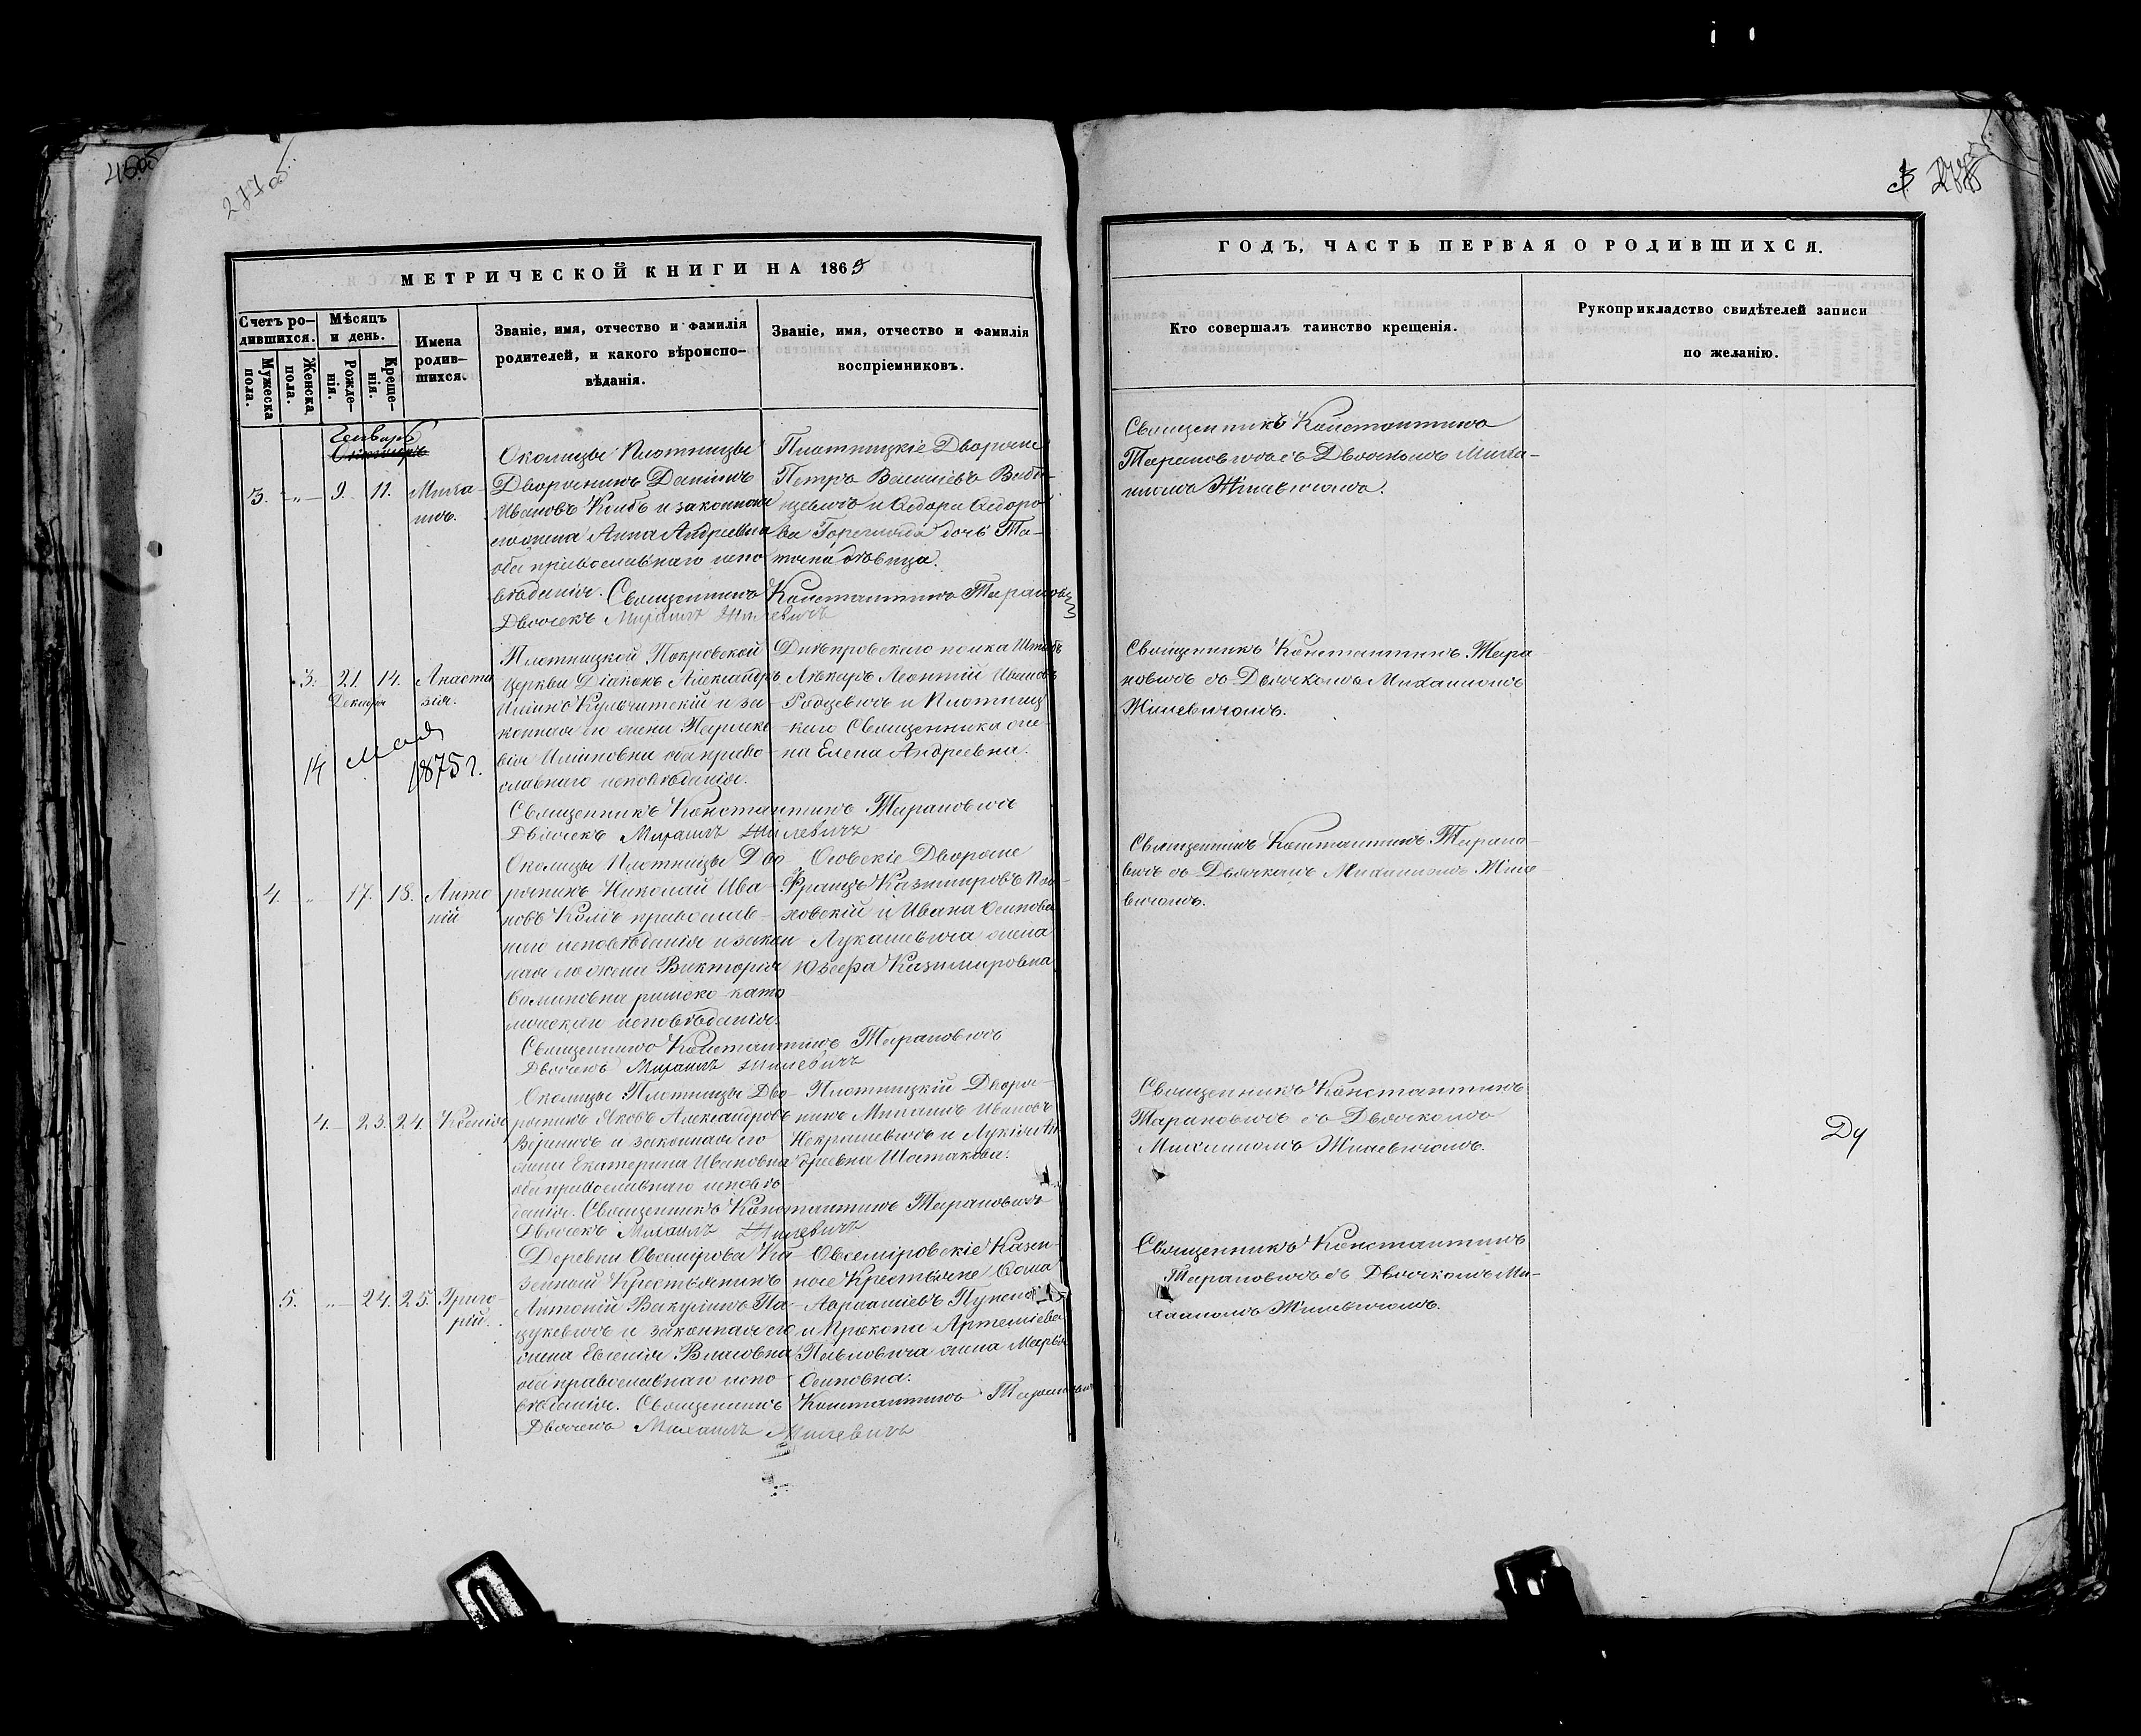 277 об.
МЕТРИЧЕСКОЙ КНИГИ НА 1865
Счетъ ро-
дившихся.
Мѣсяцъ
и день.
Мужеска
пола.
Женска
пола.
Рожде-
нія.
Креще-
нія.
Имена
родив-
шихся.
Званіе, имя, отчество и фамилія
родителей, и какого вѣроиспо-
вѣданія.
Званіе, имя, отчество и фамилія
воспріемниковъ.
Генварь
3. 9. 11. Миха-
илъ.
Околицы Плотницы
Дворянинъ Даніилъ
Ивановъ Колбъ и законная
его жена Анна Андреевна
оба православнаго испо-
вѣданія. Священникъ Константинъ Тарановичъ
Дьячекъ Михаилъ Жилевичъ
Плотницкіе Дворяне
Петръ Васильевъ
и Ѳедора Ѳедоро-
ва дочь Та-
тіана дѣвица.
3. 21. 14. Анаста
Декабря зія.
14 Мая
1875 г.
Плотницкой Покровской
церкви Діаконъ Александръ
Кульчитскій и за-
конная его жена Параске-
вія оба право-
славнаго исповѣданія.
Священникъ Константинъ Тарановичъ
Дьячекъ Михаилъ Жилевичъ
Днѣпровскаго полка Штабъ
Лѣкарь Леонтій Ивановъ
Родзевичъ и Плотниц-
каго Священника же-
на Елена Андреевна.
4. 17. 18. Анто
ній
Околицы Плотницы Дво-
рянинъ Николай Ива-
новъ Колбъ православ-
наго исповѣданія и закон
ная его жена Викторія
римско-като
лическаго исповѣданія.
Священникъ Константинъ Тарановичъ
Дьячекъ Михаилъ Жилевичъ
Осовскіе Дворяне
Францъ Казимировъ
и Ивана Осипова
Лукашевича жена
Юзефа Казимировна
4. 23. 24. Ксенія
Околицы Плотницы Дво-
рянинъ Яковъ Александровъ
и законная его
жена Екатерина Ивановна
оба православнаго исповѣ
данія. Священникъ Константинъ Тарановичъ
Дьячекъ Михаилъ Жилевичъ
Плотницкій Дворя-
нинъ Ивановъ
Некрашевичъ и Лукія Ан
дреевна Шостакова.
5. 24. 25. Григо
рій.
Деревни Овсемірова Ка-
зенный Крестьянинъ
Антоній Викулинъ Па-
цукевичъ и законная его
жена Евгенія Власовна
оба православнаго испо-
вѣданія. Священникъ Константинъ Тарановичъ
Дьячекъ Михаилъ Жилевичъ
Овсеміровскіе Казен-
ные Крестьяне
и Прокопа Артеміева
Павловича жена Марья
Осиповна.
ГОДЪ, ЧАСТЬ ПЕРВАЯ О РОДИВШИХСЯ.
Кто совершалъ таинство крещенія.
Рукоприкладство свидѣтелей записи
по желанію.
Священникъ Константинъ
Тарановичъ съ Дьячкомъ Миха-
иломъ Жилевичомъ.
Священникъ Константинъ Тара
новичъ съ Дьячкомъ Михаиломъ
Жилевичомъ.
Священникъ Константинъ Тарано-
вичъ съ Дьячкомъ Михаиломъ Жиле-
вичомъ.
Священникъ Константинъ
Тарановичъ съ Дьячкомъ
Михаиломъ Жилевичомъ.
Священникъ Константинъ
Тарановичъ съ Дьячкомъ Ми-
хаиломъ Жилевичомъ.